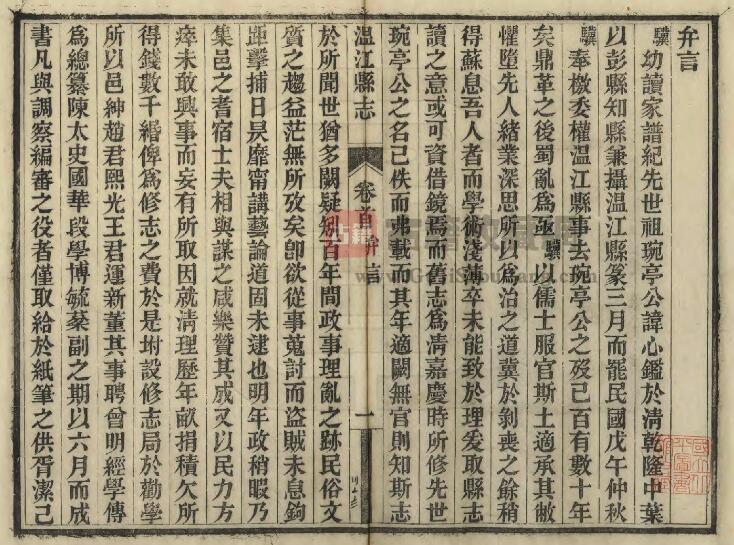 弁言
驥幼讀家譜紀先世祖琬亭公諱心鑑於清乾隆中葉
以彭縣知縣兼攝温江縣篆三月而罷民國戊午仲秋
驥奉檄委權温江縣事去琬亭公之歿已百有數十年
矣鼎革之後蜀亂為亟驥以儒士服官斯土適承其敝
懼墮先人緒業深思所以為治之道冀於剝喪之餘稍
得蘇息吾人者而學術淺薄卒未能致於理爰取縣志
讀之意或可資借鏡焉而舊志為清嘉慶時所修先世
琬亭公之名已佚而弗載而其年適闕無官則知斯志
温江縣志
卷首弁言
一
於所聞世猶多闕疑矧百年間政事理亂之跡民俗文
質之趨益茫無所攷矣卽欲從事蒐討而盜賊未息鉤
距擊捕日昃靡甯講藝論道固未逮也明年政稍暇乃
集邑之耆宿士夫相與謀之咸樂贊其成又以民力方
瘁未敢興事而妄有所取因就清理歷年畝捐積欠所
得錢數千緡俾為修志之費於是坿設修志局於勸學
所以邑紳趙君熙光王君運新董其事聘曾明經學傳
為總纂陳太史國華段學博毓棻副之期以六月而成
書凡與調察編審之役者僅取給於紙筆之供胥潔己